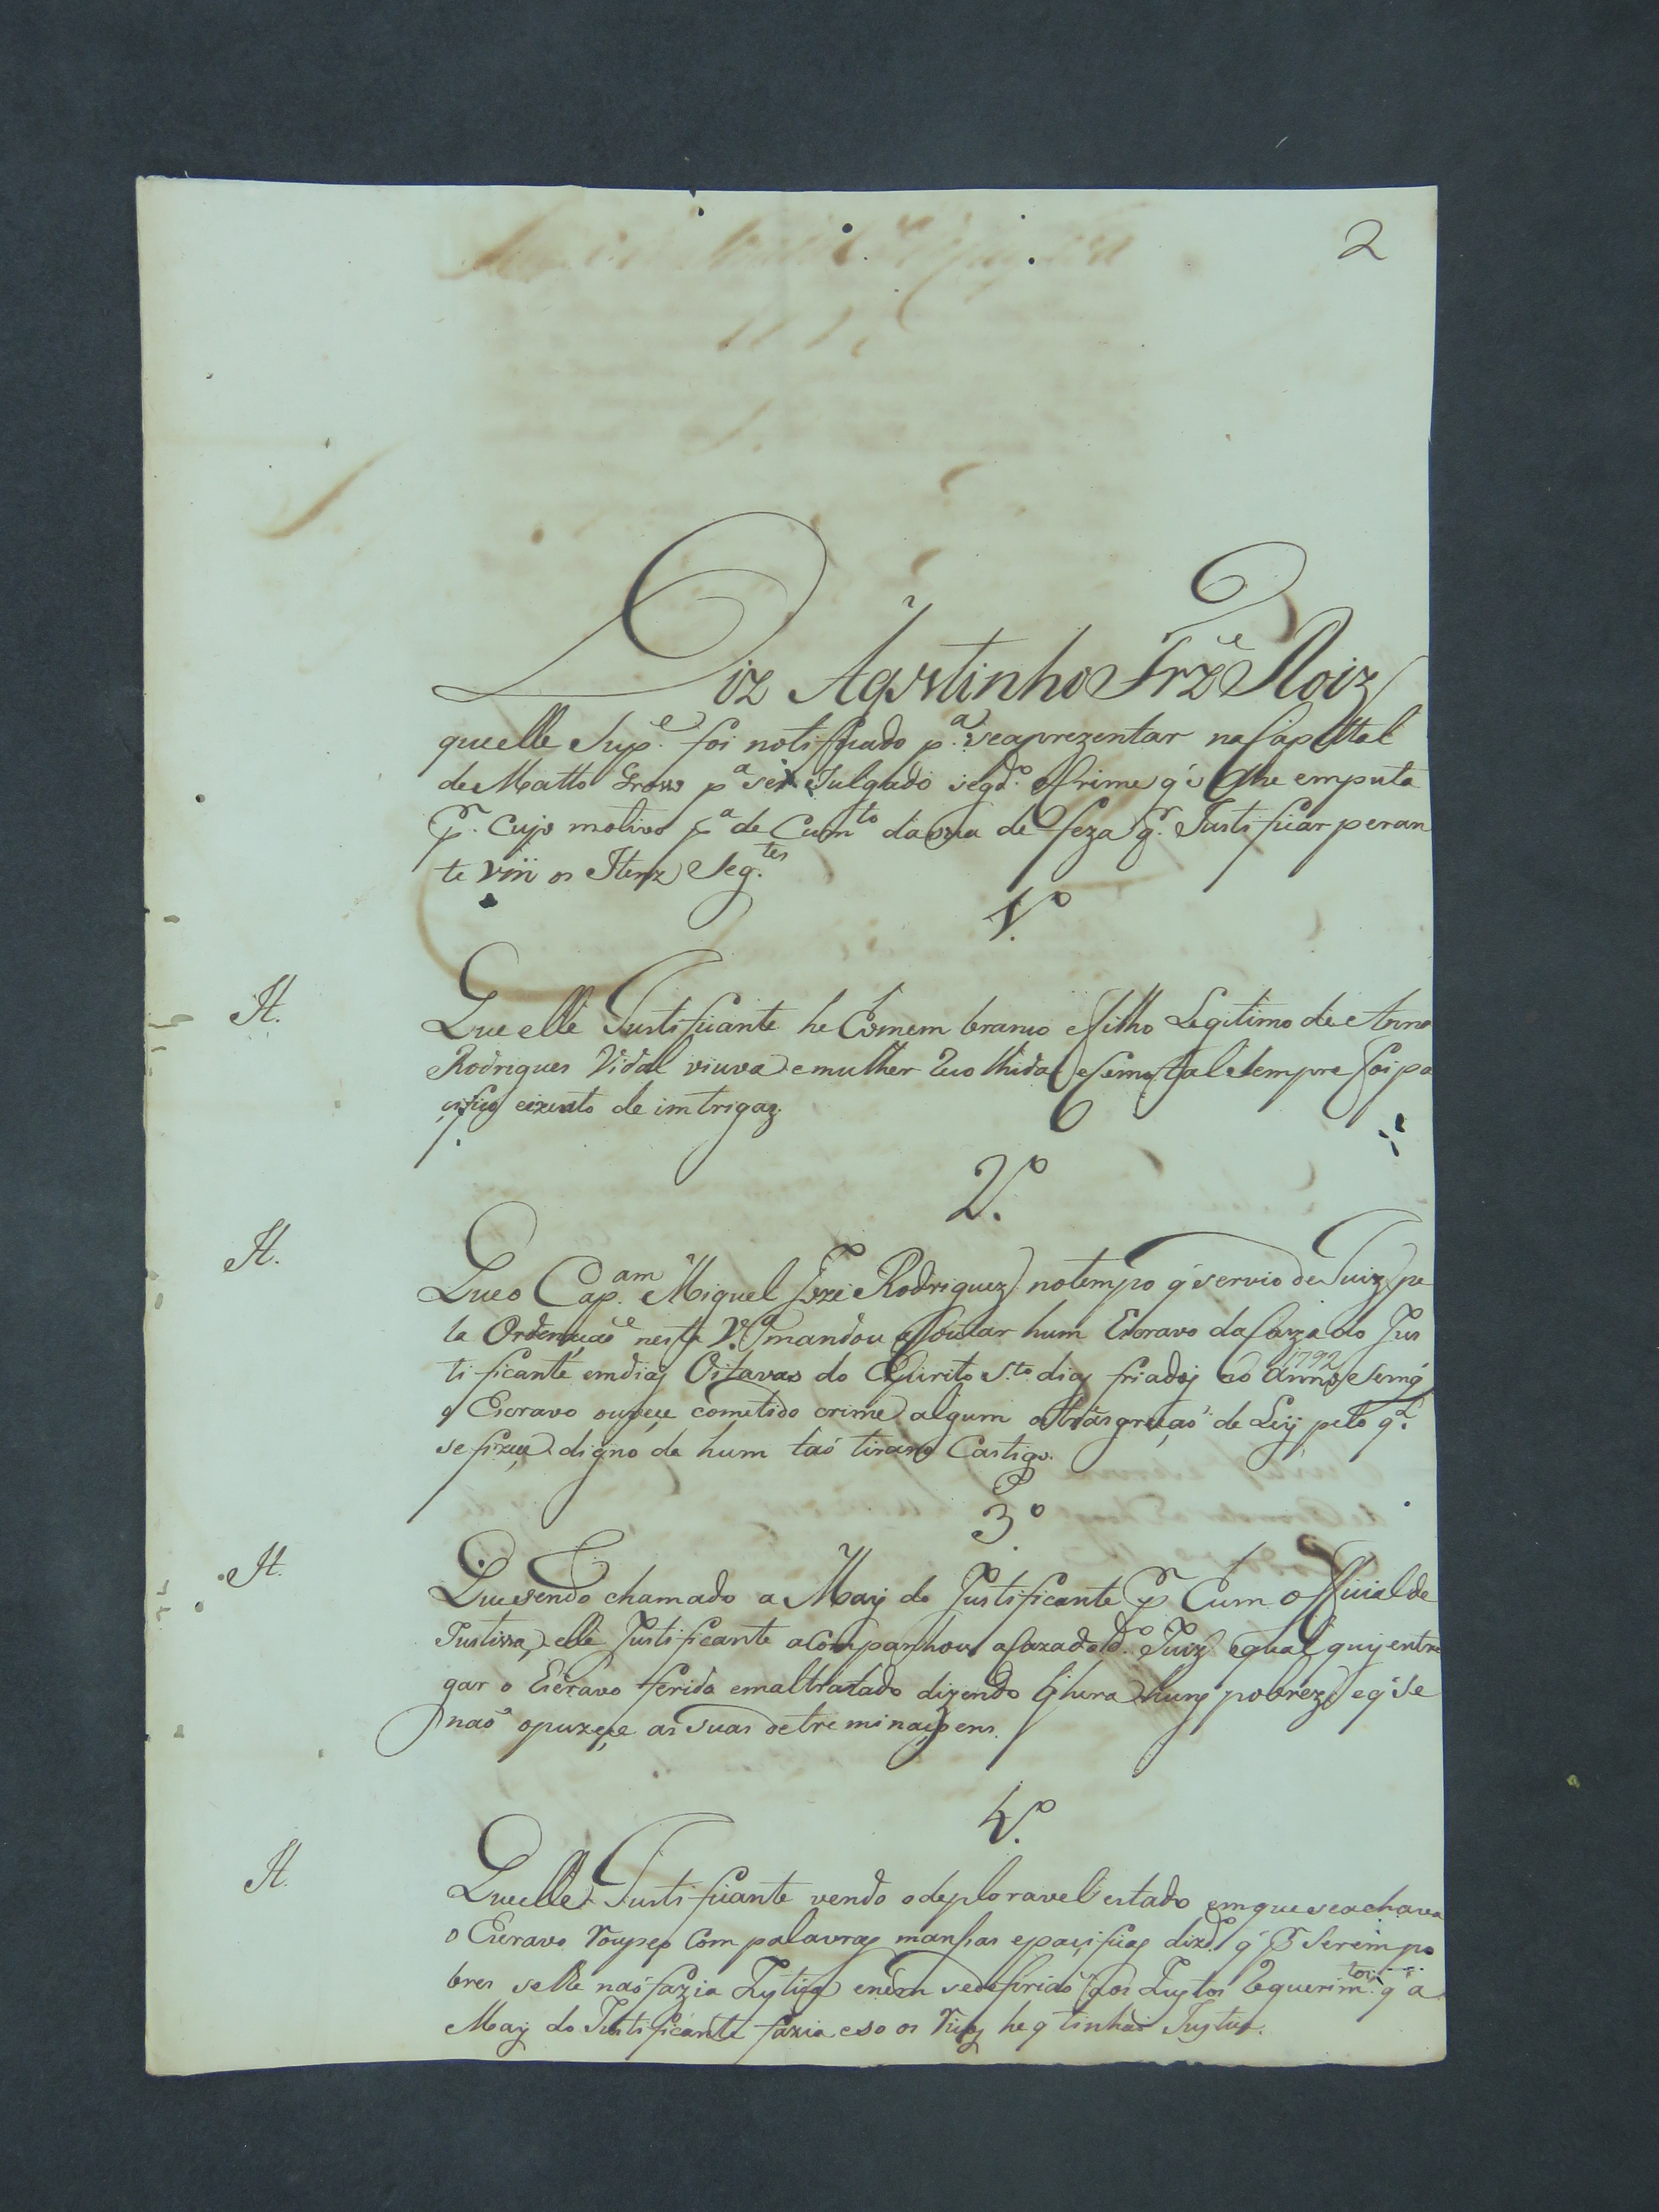 2
Diz Agostinho Frz.e Roiz
que elle Sup.e foi notificado p.a se aprezentar na Capittal
de Matto Groso p.a ser Julgado segd.o o Crime q' se lhe emputa
P.r Cujo motivo p.a de Cum.to da sua defeza q.r Justificar peran
te vm os Itenz Seg.tes
1.º
It. Que elle Justificante he homem branco e filho Legitimo de Anna
Rodrigues Vidal viuva e mulher Recolhida e Como tal e sempre foi pa
çifico eizento de imtrigaz.
2.º
It. Que o Cap.am Miguel Joze Rodriguez no tempo q' servio de Juiz pe
la Ordenação nesta V.a mandou asoutar hum Escravo da Caza do Jus
tificante em dias Oitavas do Espirito S.to dias friados do Anno 1792 e sem q'
o Escravo ouveçe cometido crime algum o trãsgreçaõ de Ley pelo q.l
se fizeçe digno de hum taõ tirano Castigo.
3.º
It. Que sendo chamado a May do Justificante P.r hum official de
Justissa, elle Justificante acompanhou a Caza do d.o Juiz o qual quiz entre
gar o Escravo ferido e maltratado dizendo q' hera huns pobrez e q' se
naõ opuzeçe as suas detreminaçoens.
4.º
It. Que elle Justificante vendo o deploravel estado em que se achava
o Escravo Rompeo Com palavras mansas e paçificas dizd.o q' P.r Serem po
bres se lhe naõ fazia Justiça e nem se deferiaõ aos Justos Requerim.tos q' a
May do Justificante fazia e so os Ricos he q tinhaõ Justiça.